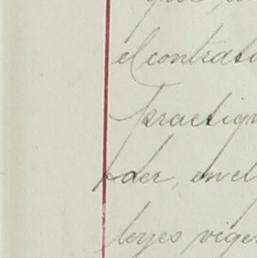 el contrato
practiqu
der, en el
leyes vige